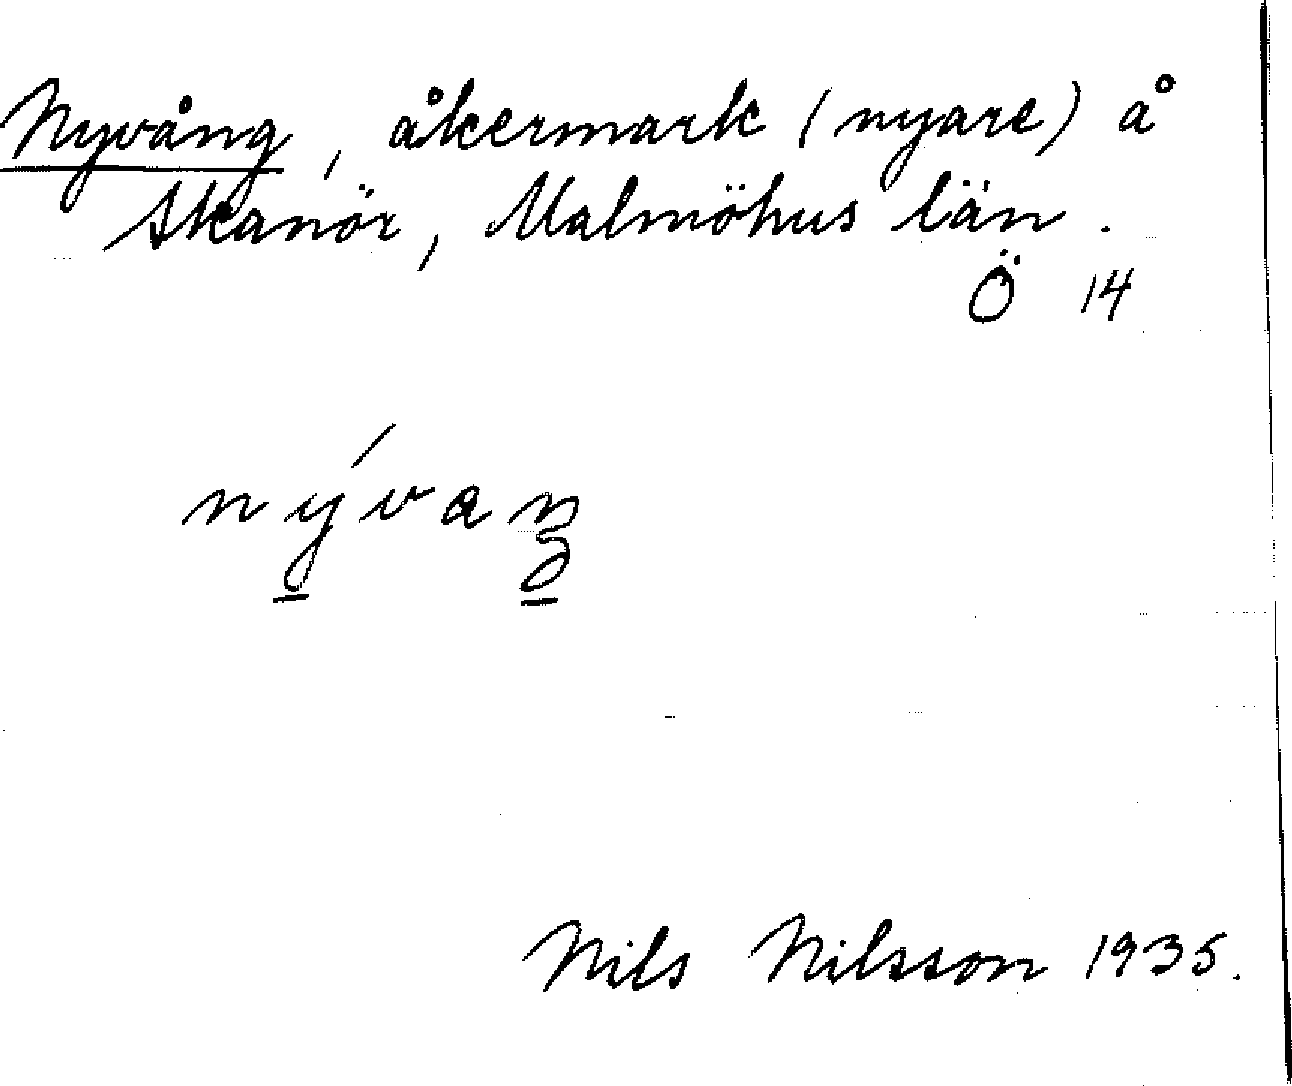 Nyvång, åkermark (nyare) å
Skanör, Malmöhus län.
Ö 14
nývaŋ
Nils Nilsson 1935.